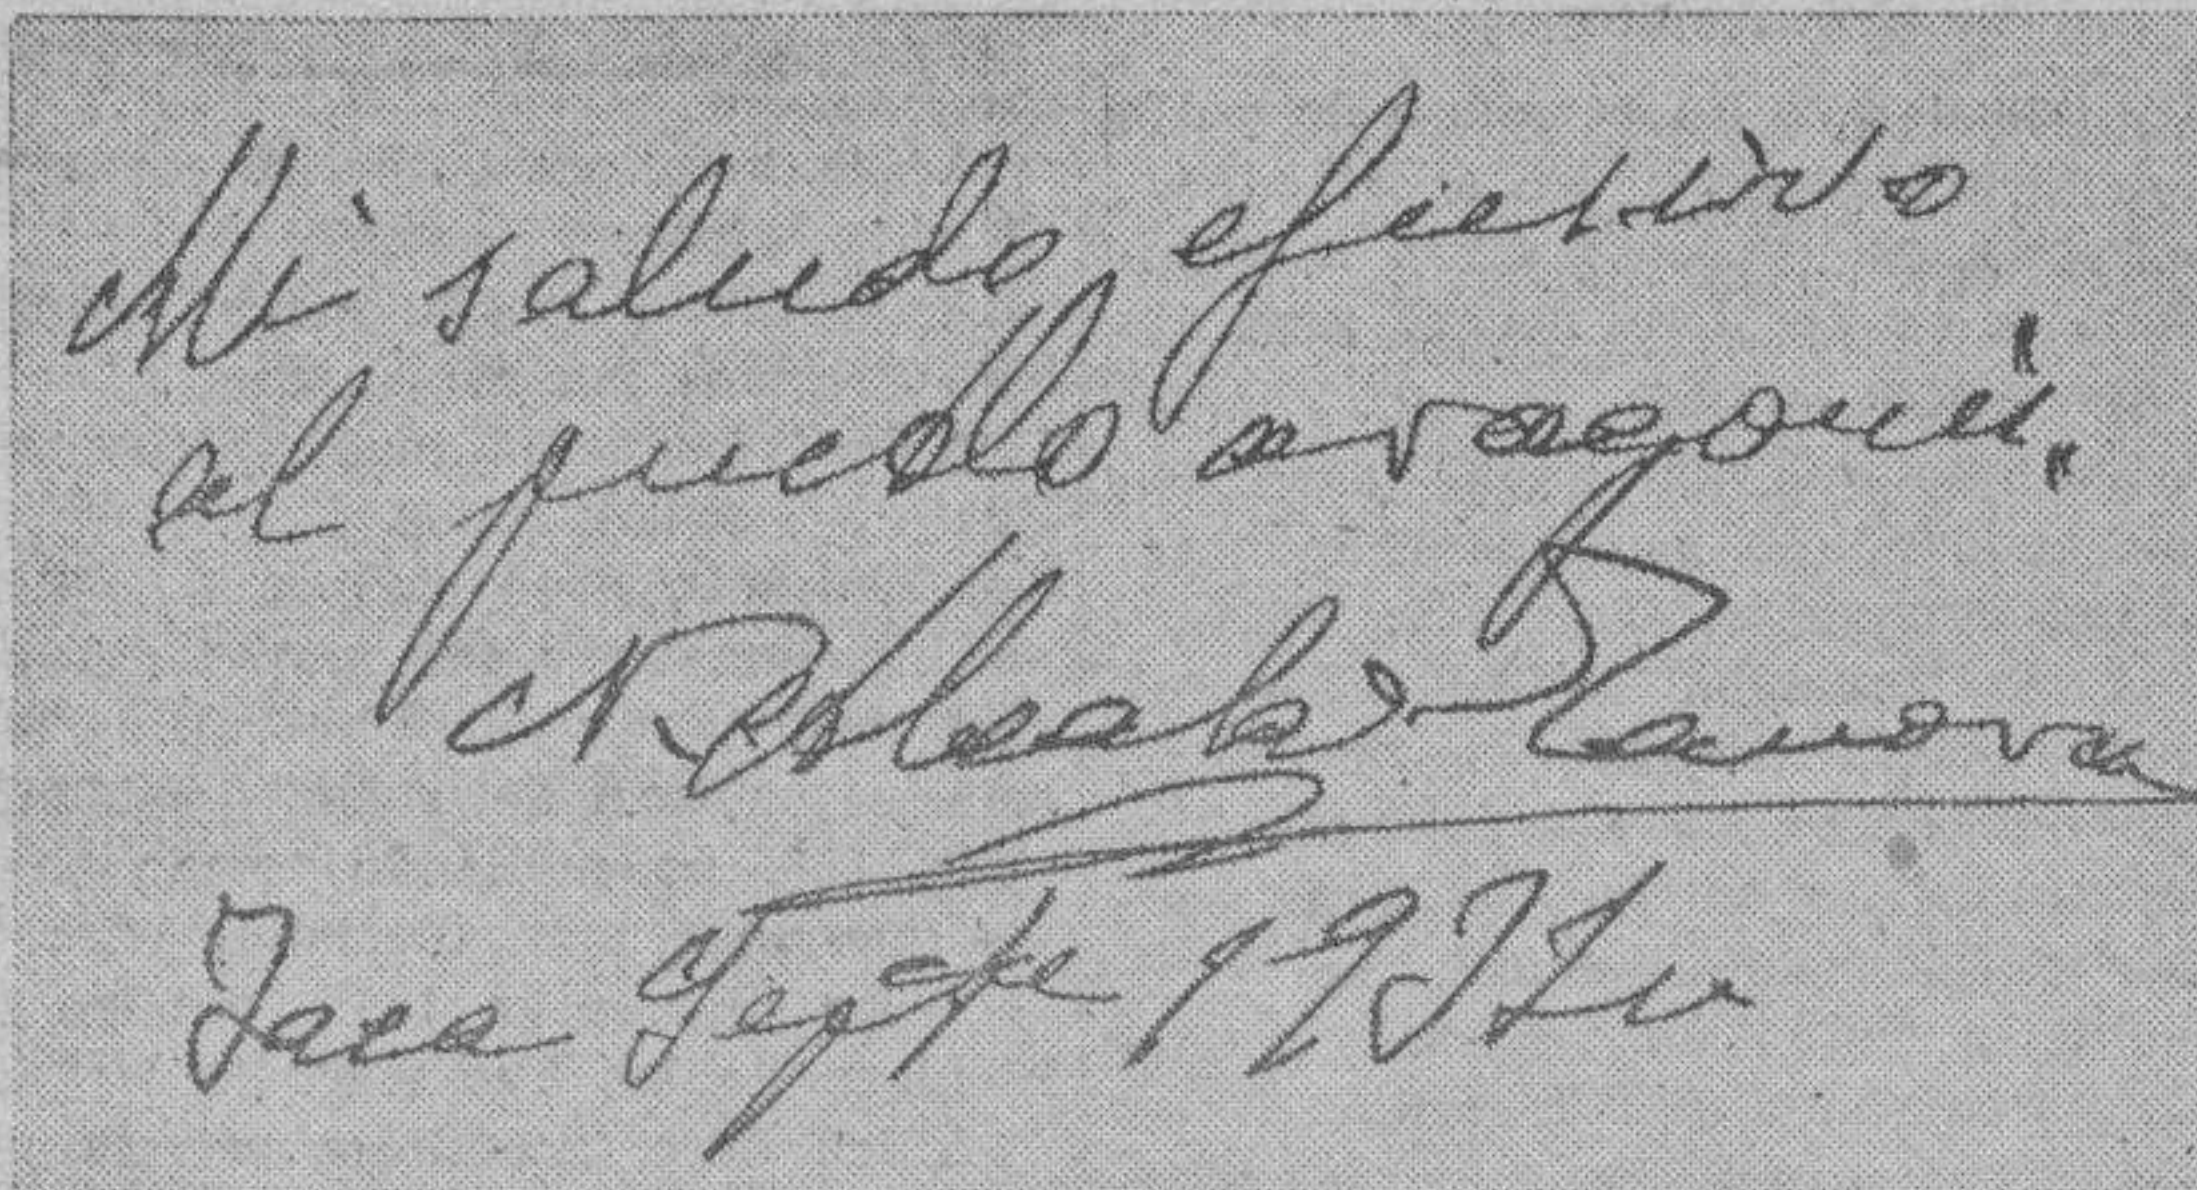 Mi saludo efusivo
al pueblo aragonés.
Niceto Alcalá-Zamora
Jaca Septe 1931